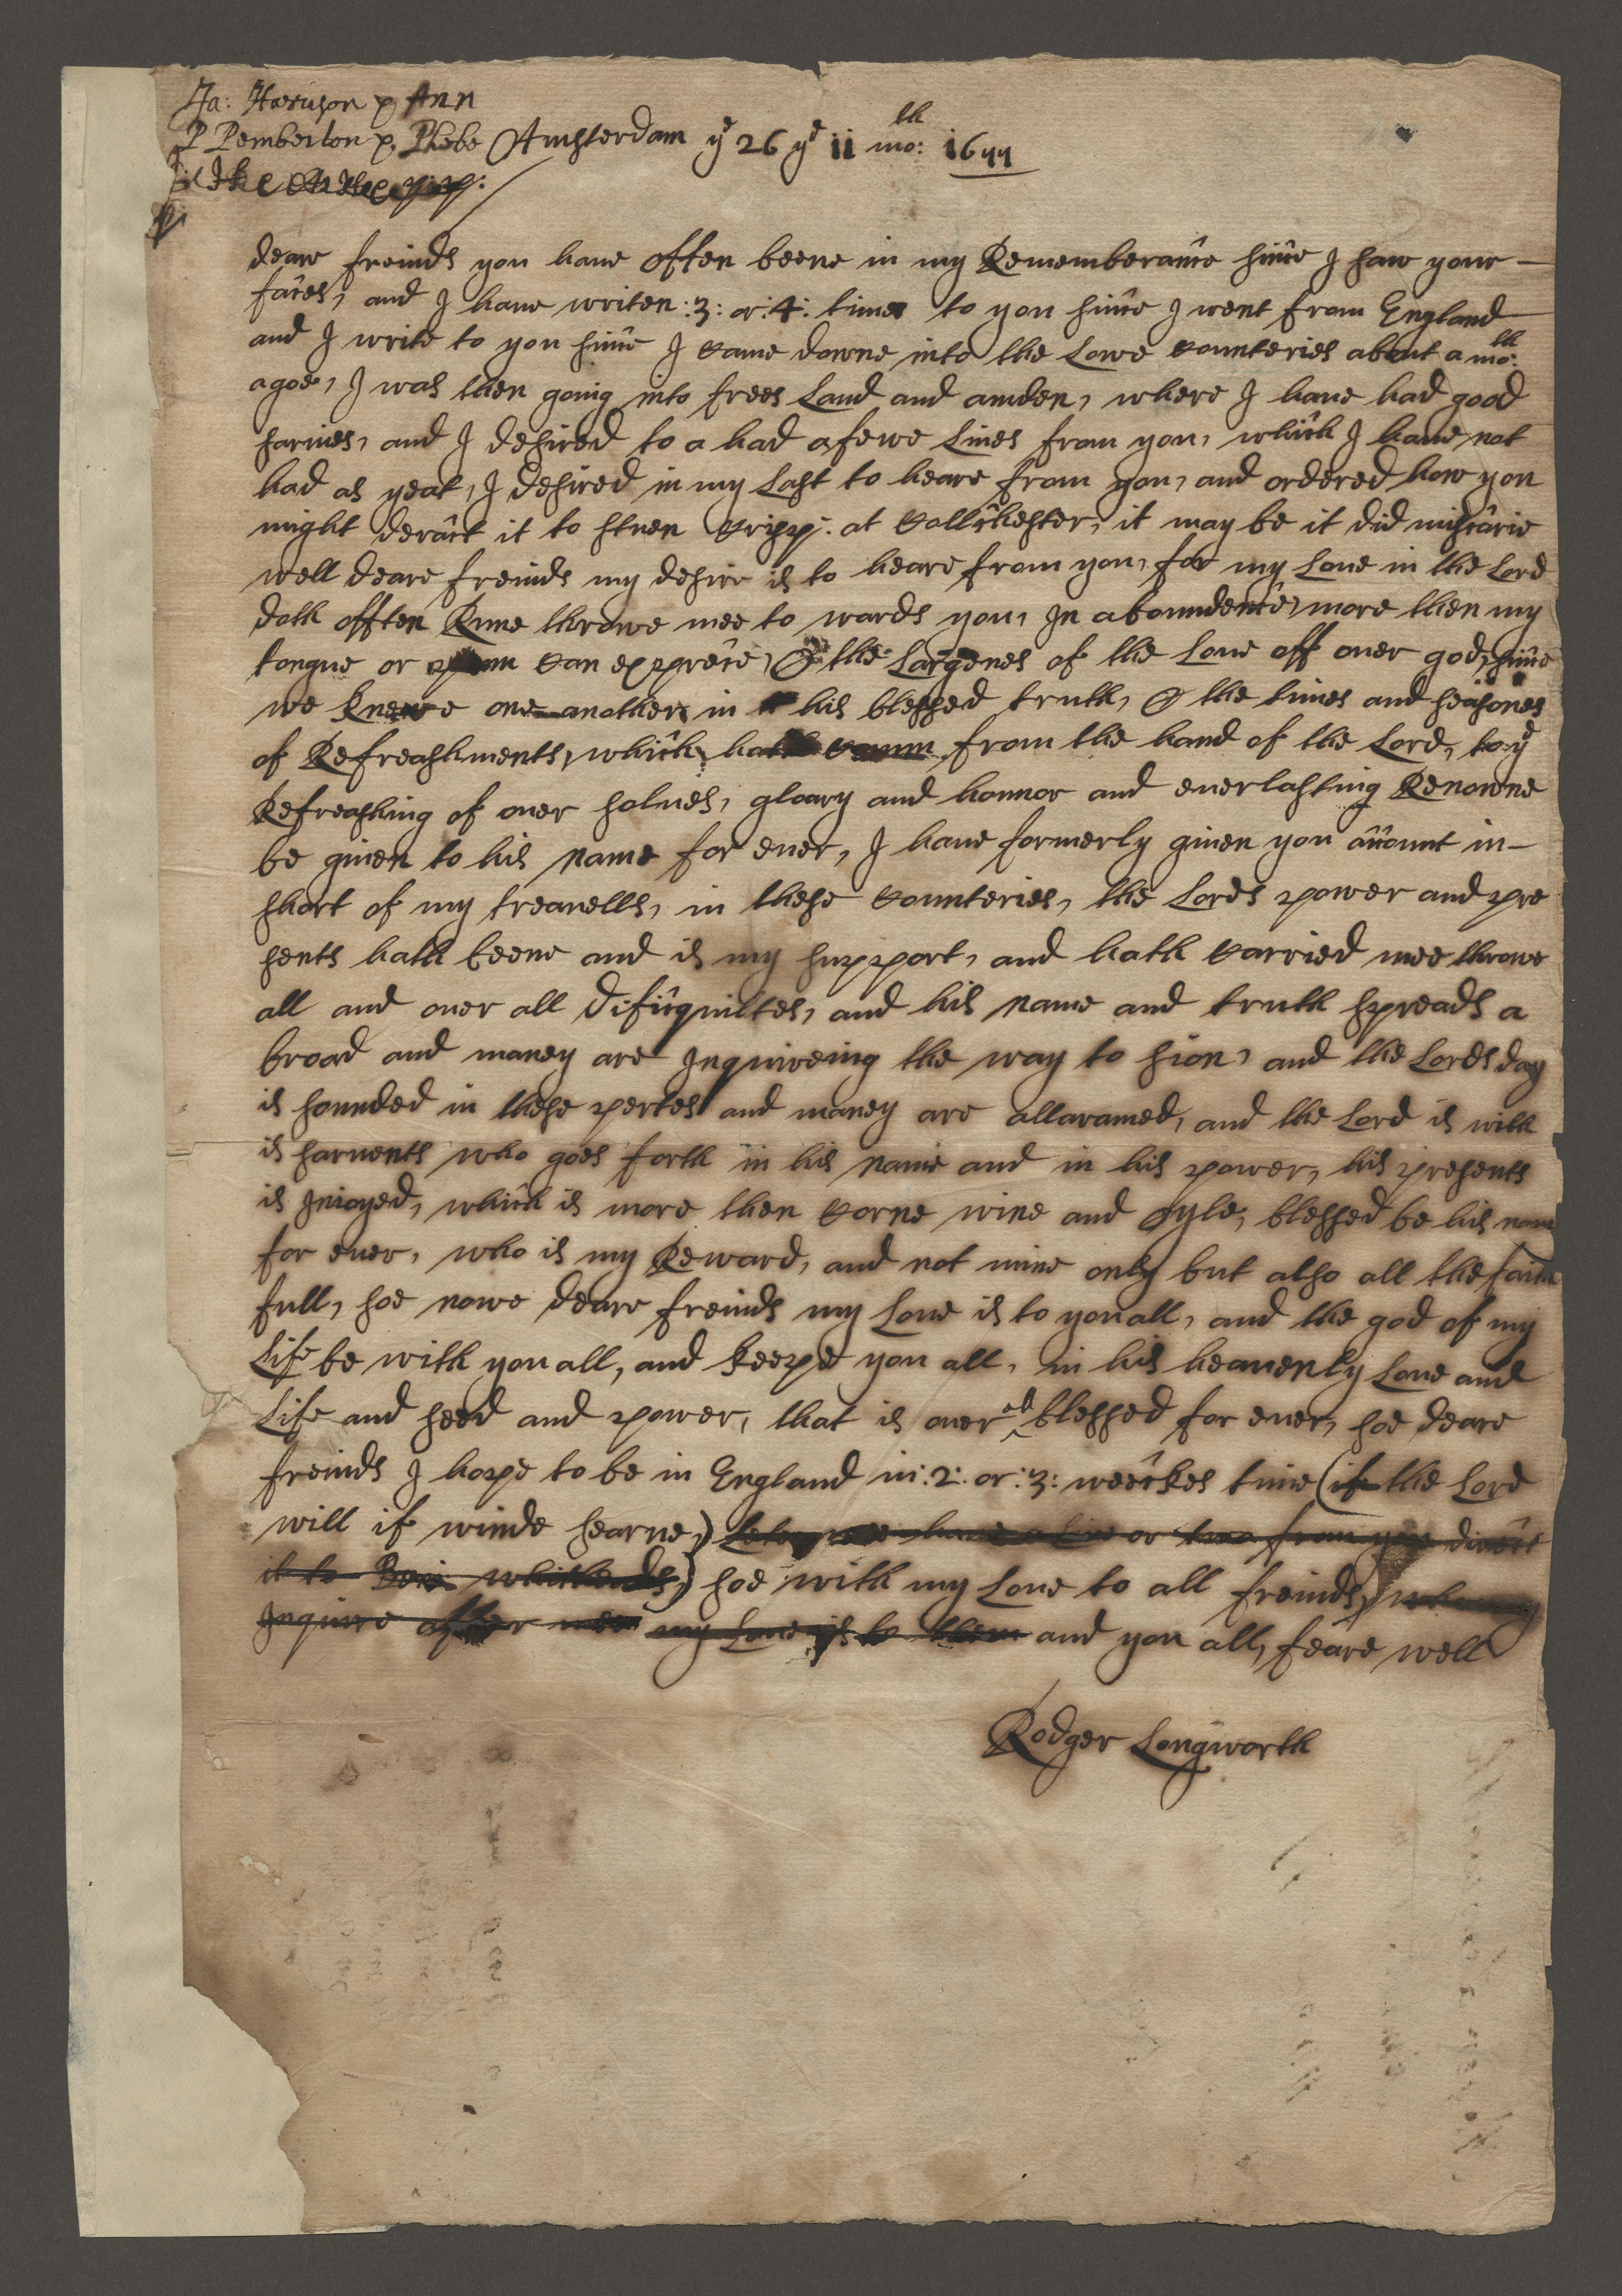 Ja: Harrison & Ann
P Pemberton & Phebe Amsterdam ye 26 ye 11 mo:th 1677
deare freinds you haue often beene in my Rememberance since I saw your
faces, and I haue writen :3: or :4: times to you since I went from England
and I write to you since I Came downe into the Lowe Counteries about a mo:th
agoe, I was then going into frees Land and amden, where I haue had good
sarvies, and I desired to a had a fewe Lines from you, which I haue not
had as yeat, I desired in my Last to heare from you, and ordered how you
might deract it to stuen Crisp: at Collchester, it may be it did miscarie
well deare freinds my desire is to heare from you, for my Loue in the Lord
doth offten Rune throwe mee to wards you, In aboundence, more then my
tongue or penn Can exprece, O the Largenes of the Loue off ouer god, since
we Knewe one another in his blessed truth, O the times and seasones
of Refreashments, which hath Comm from the hand of the Lord, to ye
Refreashing of ouer solues, gloary and honnor and euerlasting Renowne
be giuen to his name for euer, I haue formerly giuen you account in
short of my treauells, in these Counteries, the Lords power and pre
sents hath beene and is my support, and hath Carried mee throwe
all and ouer all dificquiltes, and his name and truth spreads a
broad and maney are Inquireing the way to sion, and the Lords day
is sounded in these pertes and maney are allaramed, and the Lord is with
is saruents who goes forth in his name and in his power, his presents
is Inioyed, which is more then Corne wine and oyle, blessed be his name
for euer, who is my Reward, and not mine only but also all the faith
full, soe nowe deare freinds my Loue is to you all, and the god of my
Life be with you all, and keepe you all, in his heauenly Loue and
Life and seed and power, that is ouer all blessed for euer, soe deare
freinds I hope to be in England in :2: or :3: weeckes time (if the Lord
will if winde searue,) Let mee haue a Line or two from you direct
it to whitheads) soe with my Loue to all freinds,
Inquire after mee my Loue is to them and you all, feare well
Rodger Longworth